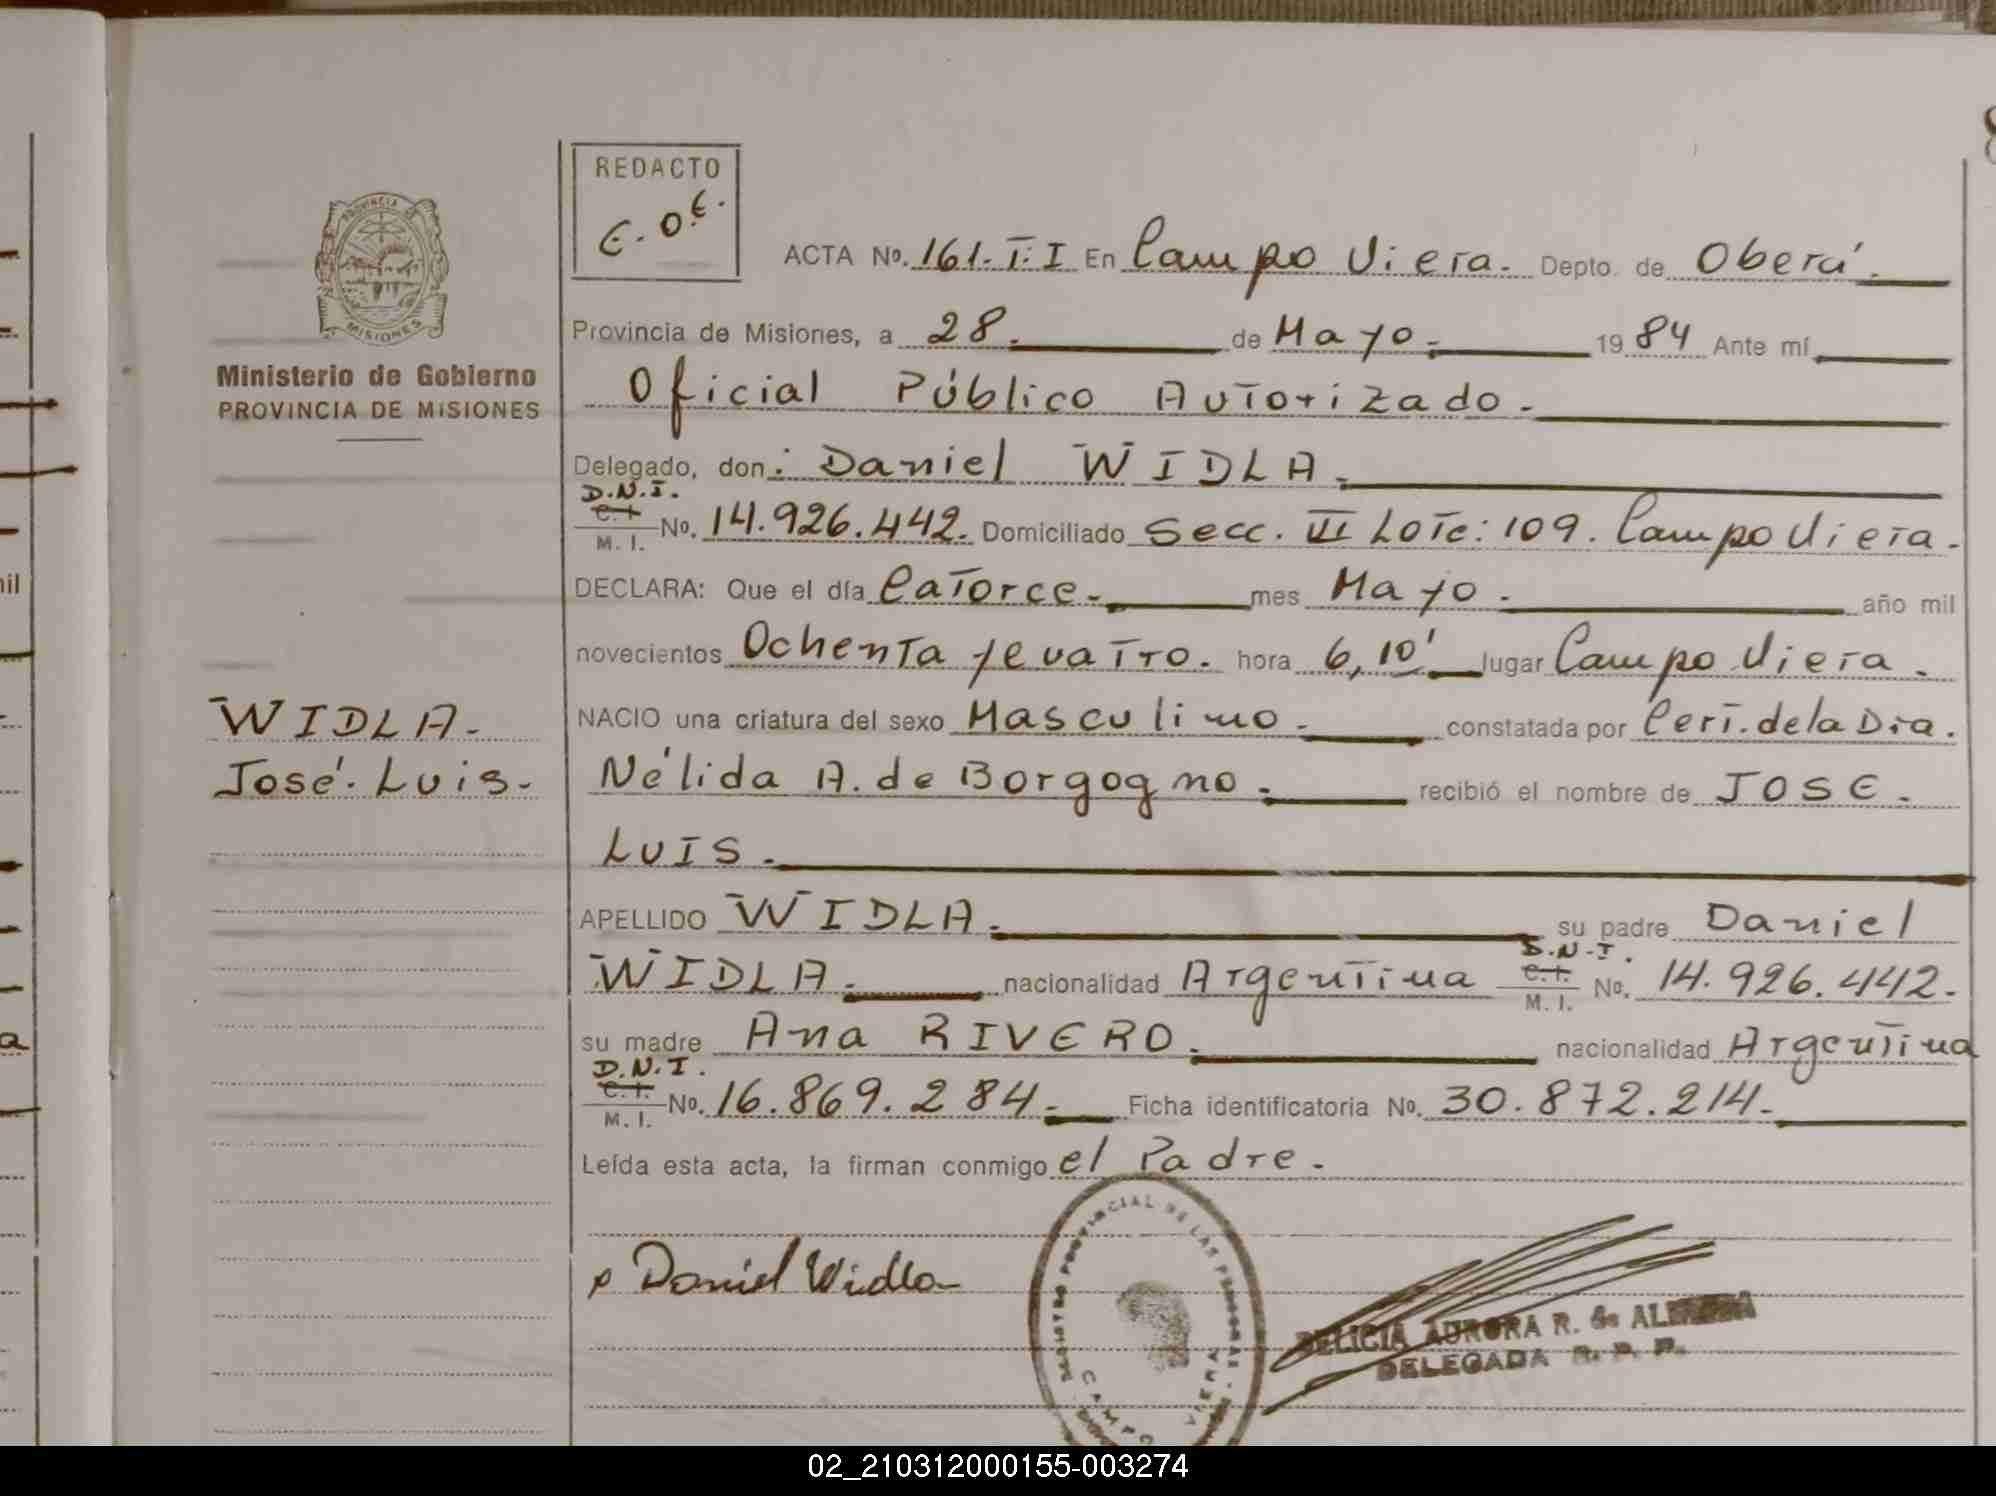 REDACTO
E.O.E.
PROVINCIA DE
MISIONES
Ministerio de Gobierno
PROVINCIA DE MISIONES
ACTA No. 161.T:I En Campo Viera. Depto. de Oberá.
Provincia de Misiones, a 28. de Mayo. 1984 Ante mí
Oficial Público Autorizado.
Delegado, don: Daniel WIDLA.
D.N.I.
C.I.
M.I. No. 14.926.442. Domiciliado Secc. VI Lote: 109. Campo Viera.
DECLARA: Que el día Catorce. mes Mayo. año mil
novecientos Ochenta y cuatro. hora 6,10' lugar Campo Viera.
NACIO una criatura del sexo Masculino. constatada por Cert. de la Dra.
Nélida A. de Borgogno. recibió el nombre de JOSE.
LUIS.
WIDLA.
José. Luis.
APELLIDO WIDLA. su padre Daniel
D.N.I.
WIDLA. nacionalidad Argentina C.I. M.I. No. 14.926.442.
su madre Ana RIVERO. nacionalidad Argentina
D.N.I.
C.I.
M.I. No. 16.869.284. Ficha identificatoria No. 30.872.214.
Leída esta acta, la firman conmigo el Padre.
Daniel Widla
REGISTRO PROVINCIAL DE LAS PERSONAS
CAMPO VIERA
DELICIA AURORA R. de
DELEGADA R. P. P.
nil
a
02_210312000155-003274